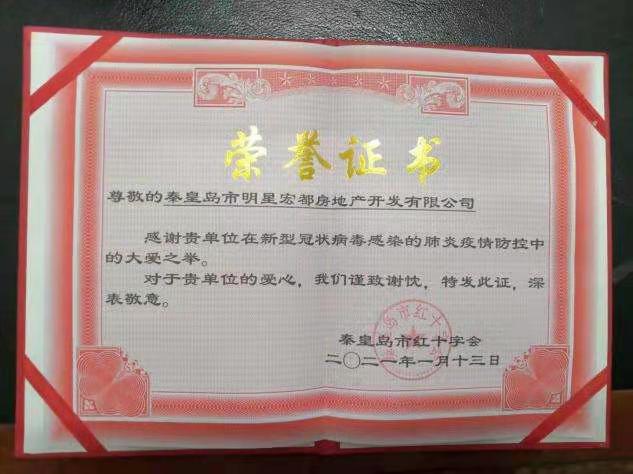 荣誉证书
尊敬的秦皇岛市明星宏都房地产开发有限公司
感谢贵单位在新型冠状病毒感染的肺炎疫情防控中
的大爱之举。
对于贵单位的爱心，我们谨致谢忱，特发此证，深
表敬意。
秦皇岛市红十字会
二〇二一年一月十三日